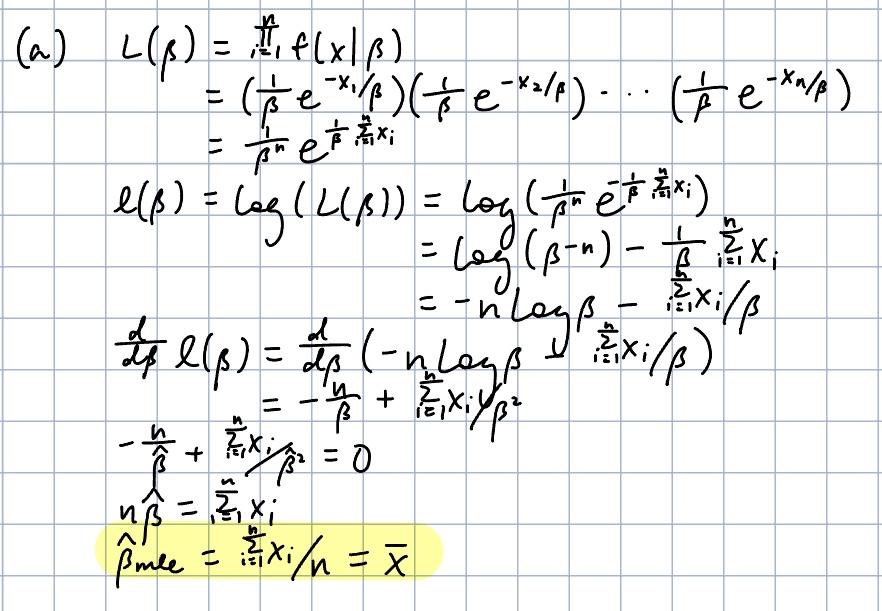 (a) L(β) = ∏ᵢ₌₁ⁿ f(x|β)
= (1/β e^(-x₁/β))(1/β e^(-x₂/β)) ... (1/β e^(-xₙ/β))
= 1/βⁿ e^(1/β ∑ᵢ₌₁ⁿ xᵢ)
ℓ(β) = log(L(β)) = log(1/βⁿ e^(-1/β ∑ᵢ₌₁ⁿ xᵢ))
= log(β⁻ⁿ) - 1/β ∑ᵢ₌₁ⁿ xᵢ
= -n log β - ∑ᵢ₌₁ⁿ xᵢ/β
d/dβ ℓ(β) = d/dβ (-n log β - ∑ᵢ₌₁ⁿ xᵢ/β)
= -n/β + ∑ᵢ₌₁ⁿ xᵢ/β²
-n/β̂ + ∑ᵢ₌₁ⁿ xᵢ/β̂² = 0
nβ̂ = ∑ᵢ₌₁ⁿ xᵢ
β̂mle = ∑ᵢ₌₁ⁿ xᵢ/n = x̄